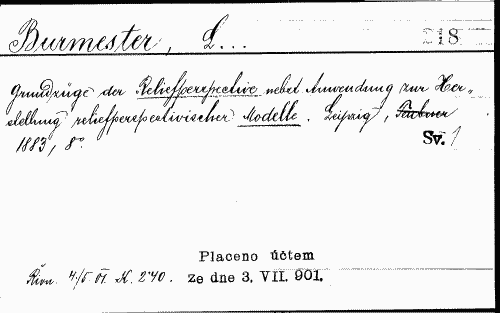 Burmester, L... 218
Grundzüge der Reliefperspective nebst Anwendung zur Her-
stellung reliefperspectivischer Modelle. Leipzig, Teubner
1883, 8° Sv. 1
Placeno účtem
Řivn. 4/5 01. K. 2·40. ze dne 3. VII. 901.